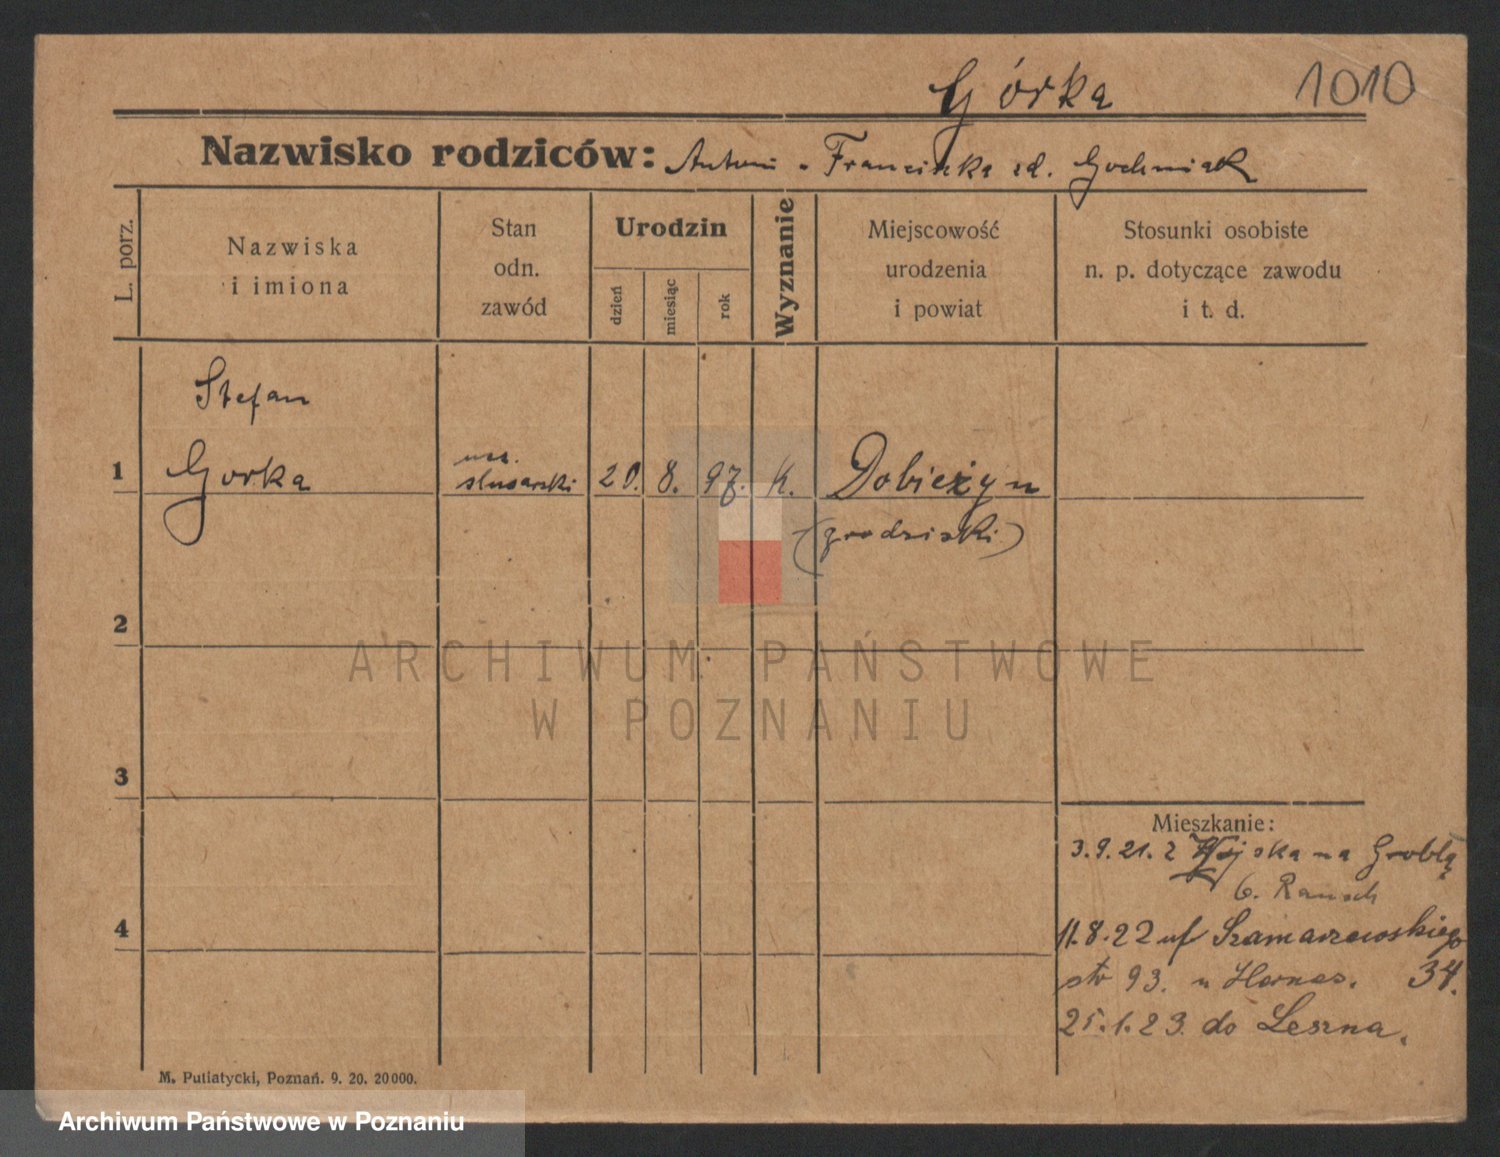 Górka 1010
Nazwisko rodziców: Antoni - Franciszka zd. Gochniak
L. porz.
Nazwiska
i imiona
Stan
odn.
zawód
Urodzin
dzień
miesiąc
rok
Wyznanie
Miejscowość
urodzenia
i powiat
Stosunki osobiste
n. p. dotyczące zawodu
i t. d.
Stefan
1 Gorka
ucz.
slusarski 20. 8. 97. k. Dobieżyn
(grodziski)
2
3
4
Mieszkanie:
3.9.21. z Wojska na Groblą
6. Rausch
11.8.22 uf Szamarzewskiego
str 93. u Hernes. 34.
25.1.23. do Leszna.
M. Putiatycki, Poznań. 9. 20. 20000.
ARCHIWUM PAŃSTWOWE
W POZNANIU
Archiwum Państwowe w Poznaniu